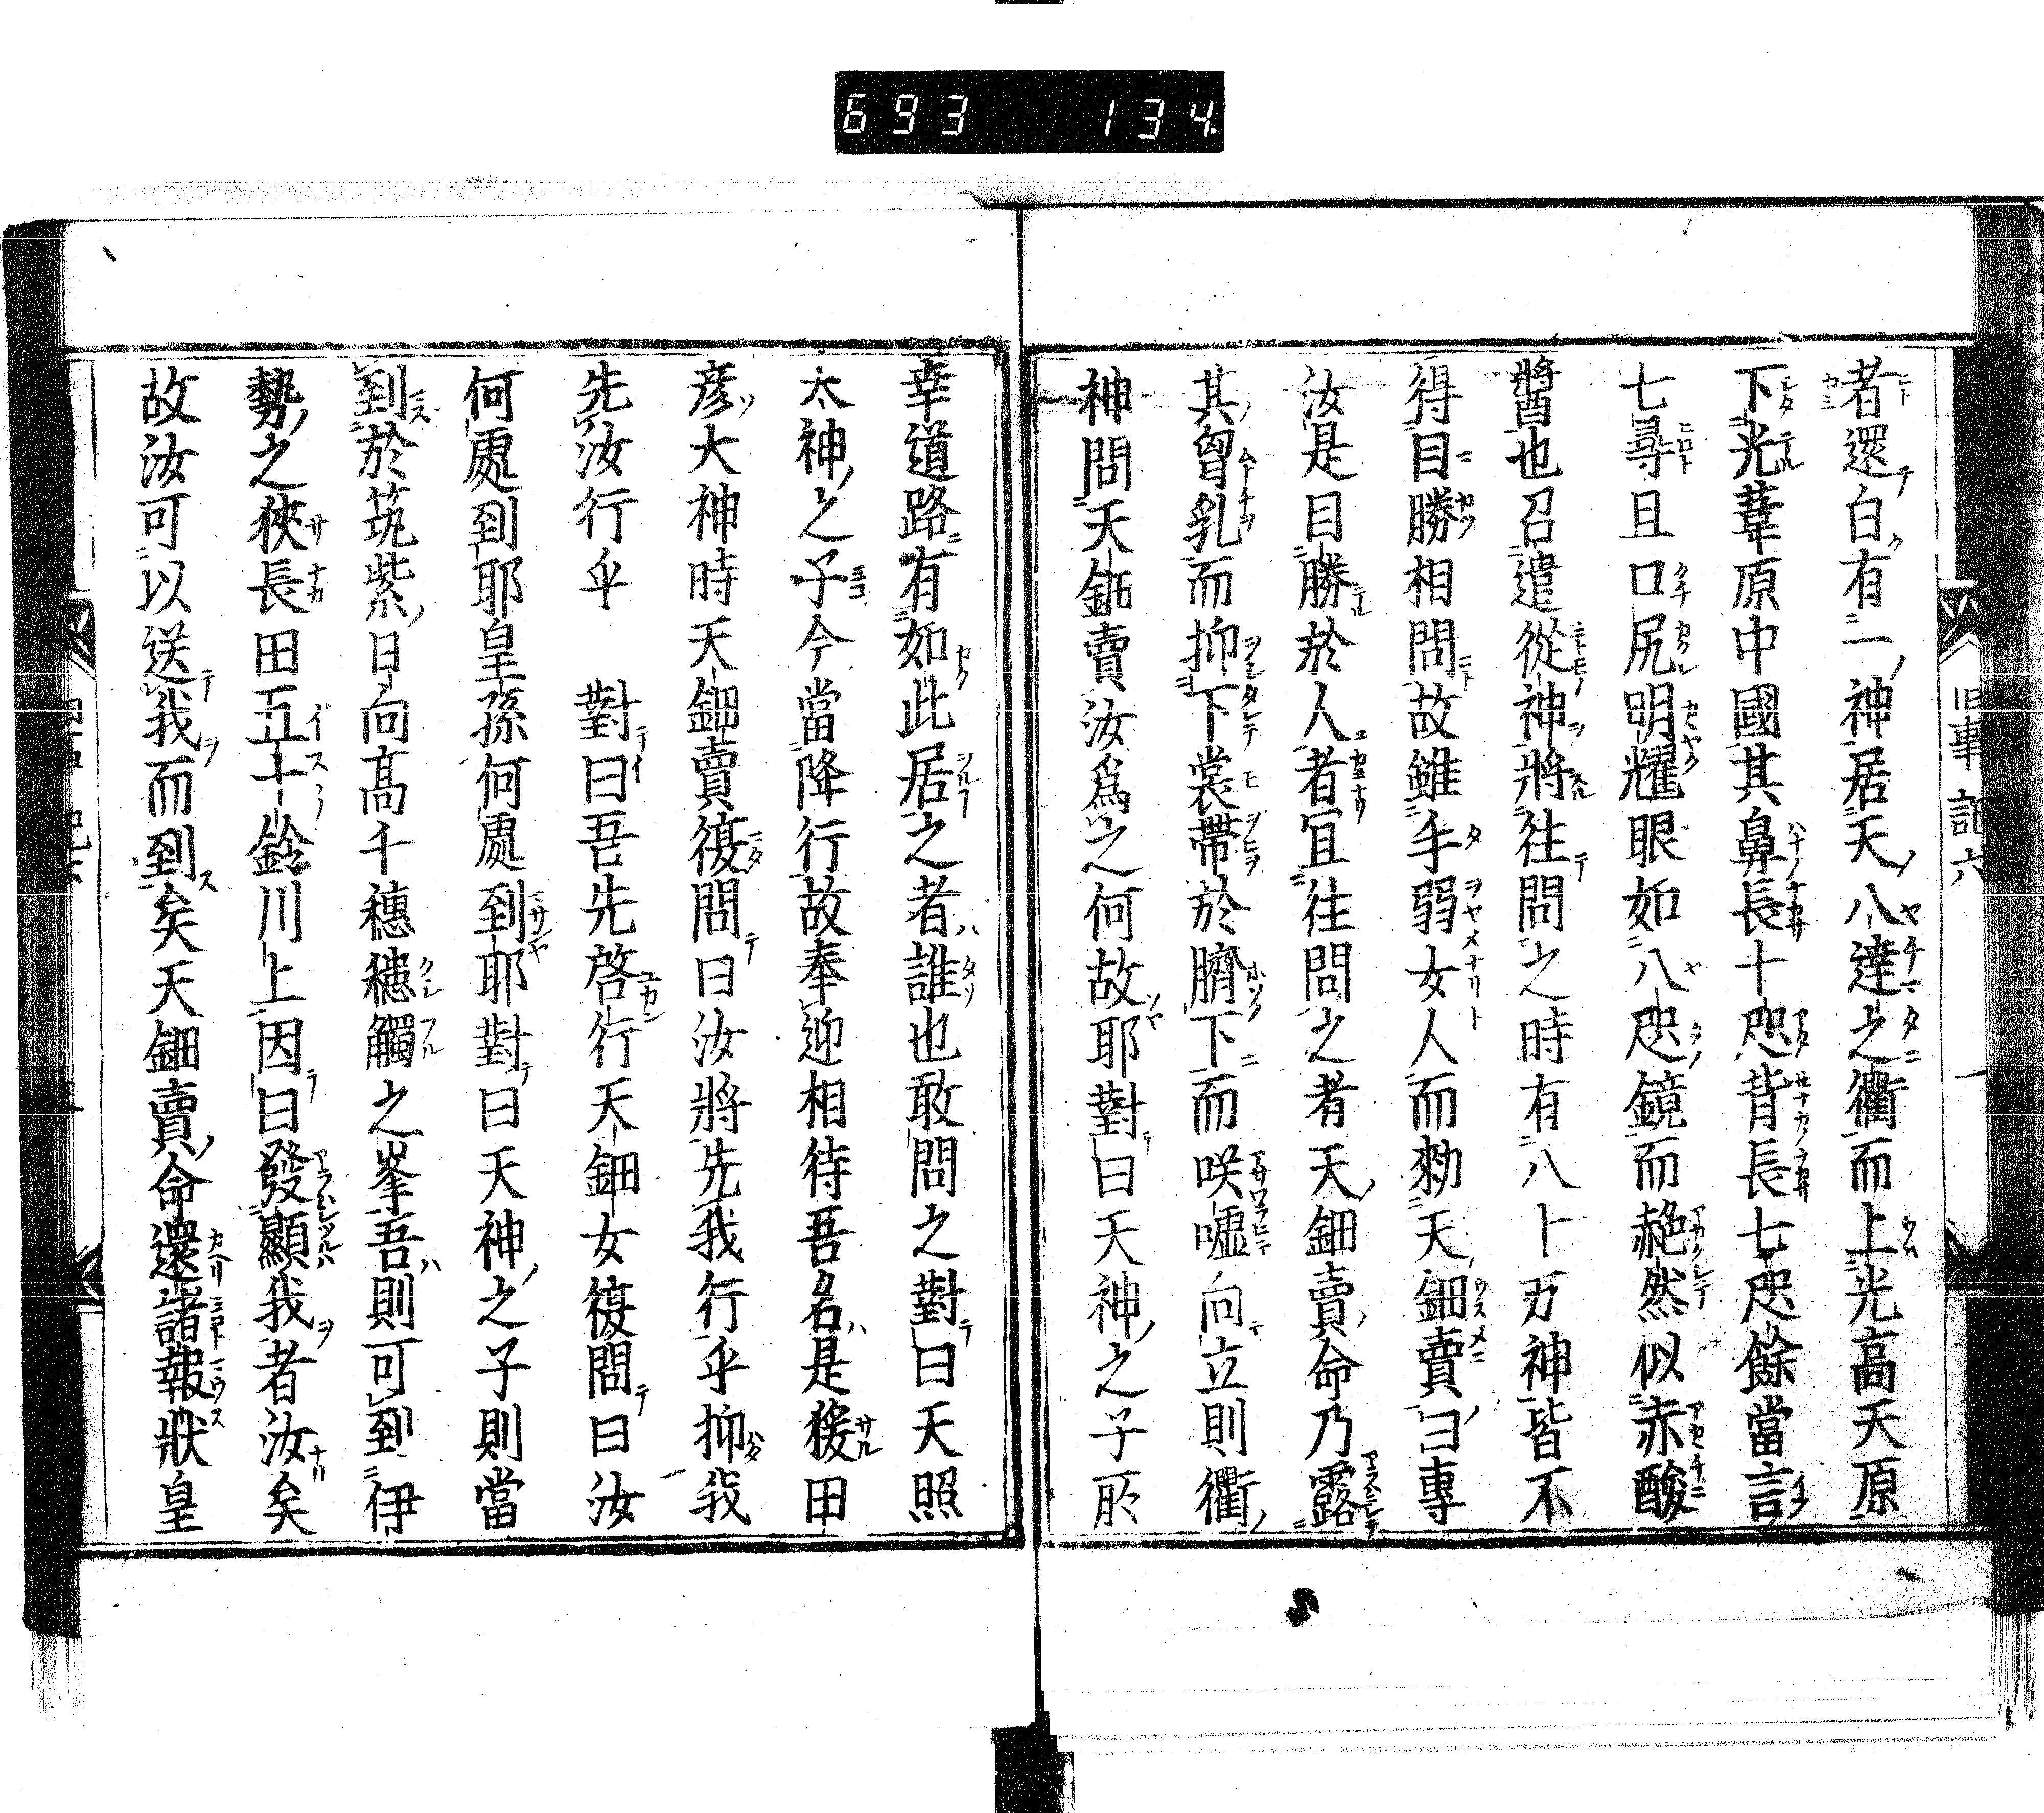 693 134
者還白有一神居天八達之衢而上光高天原
下光葦原中國其鼻長十咫背長七咫餘當言
七尋且口尻明耀眼如八咫鏡而赩然似赤酸
醬也召遣從神將往問之時有八十万神皆不
得目勝相問故雖手弱女人而勑天鈿賣曰專
汝是目勝於人者冝往問之者天鈿賣命乃露
其曾乳而抑下裳帶於臍下而咲嘘向立則衢
神問天鈿賣汝爲之何故耶對曰天神之子所
幸道路有如此居之者誰也敢問之對曰天照
太神之子今當降行故奉迎相待吾名是猨田
彦大神時天鈿賣復問曰汝將先我行乎抑我
先汝行乎 對曰吾先啓行天鈿女復問曰汝
何處到耶皇孫何處到耶對曰天神之子則當
到於筑紫日向髙千穗穗觸之峯吾則可到伊
勢之狹長田五十鈴川上因曰發顯我者汝矣
故汝可以送我而到矣天鈿賣命還諸報狀皇
旧事記六